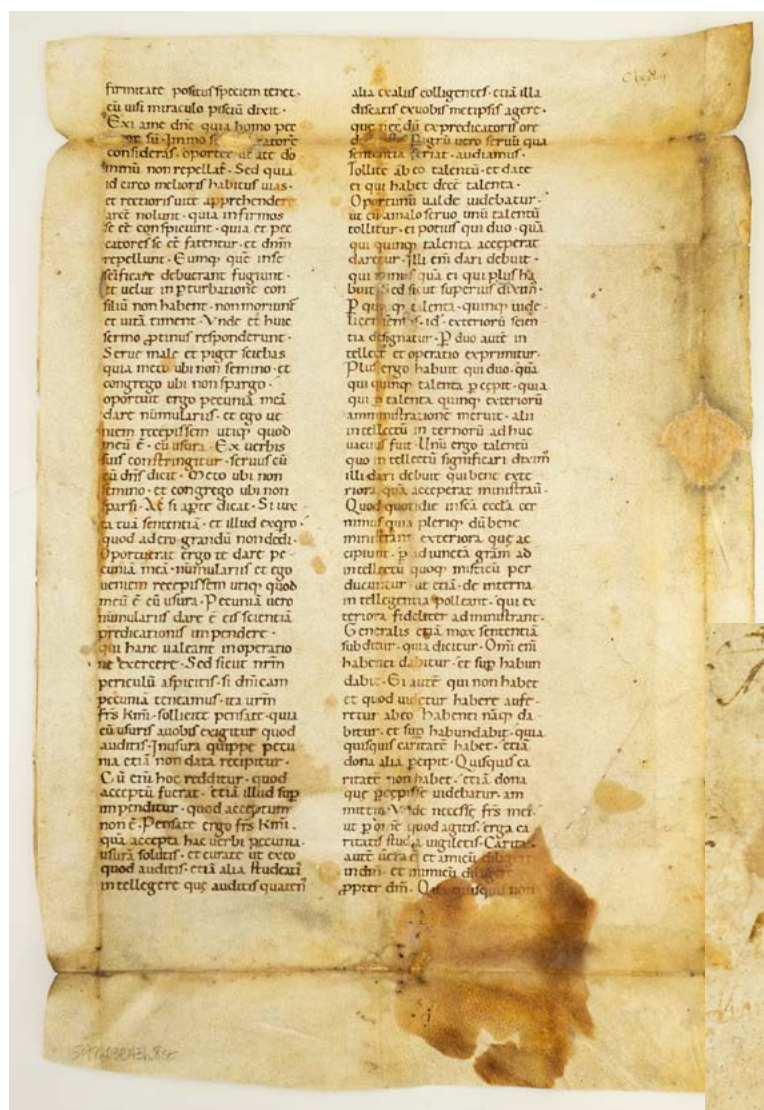 firmitate positus speciem tenet·
cū uisi miraculo pisciū dixit·
Exi a me dñe quia homo pec
sū· Immo si
consideras· oportet ut a te do
minū non repellas· Sed quia
id circo melioris habitus uias·
et rectioris uitę apprehendere
arcē nolunt· quia infirmos
se eē conspiciunt· quia et pec
catores se eē fatentur· et dnm̄
repellunt· Eumq; quē in se
debuerant fugiunt·
et uelut in pturbatione con
siliū non habent· non moriunt̄
et uitā timent· Vnde et huic
seruo ꝓtinus respondetur·
Serue male et piger sciebas
quia meto ubi non semino· et
congrego ubi non spargo·
oportuit ergo pecuniā meā
dare nūmulariis· et ego ue
niens recepissem utiq; quod
meū ē· cū usura· Ex uerbis
suis constringitur· seruus cū
dñs dicit· Meto ubi non
semino· et congrego ubi non
sparsi· Ac si apte dicat· Si iux
ta tuā sententiā· et illud exqro·
quod ad ero grandū non dedi·
Oportuerat ergo te dare pe
cuniā meā· nūmulariis et ego
ueniens recepissem utiq; quod
meū ē cū usura· Pecuniā uero
nūmulariis dare ē eis scientiā
predicationis impendere·
qui hanc ualeant in operatio
ne exercere· Sed sicut nrm̄
periculū aspicitis· si dn̄icam
pecuniā teneamus· ita urm̄
frs̄ km̄i· sollicite pensate· quia
cū usuris a uobis exigitur quod
auditis· In usura quippe pecu
nia etiā non data recipitur·
Cū enī hoc redditur· quod
acceptū fuerat· etiā illud sup
impenditur· quod acceptum
non ē· Pensate ergo frs̄ km̄i·
quā accepta hac uerbi pecunia·
usurā soluitis· et curate ut ex eo
quod auditis· etiā alia studeatis
intellegere que auditis quatenꝰ
alia ex aliis colligentes· etiā illa
discatis ex uobis metipsis agere·
que necdū ex predicatoris ore
Pigrū uero seruū qua
sententia feriat· audiamus·
Tollite ab eo talentū· et date
ei qui habet decē talenta·
Oportunū ualde uidebatur·
ut cū a malo seruo unū talentū
tollitur· ei potius qui duo· quā
qui quinq; talenta acceperat
daretur· Illi enī dari debuit·
qui minus quā ei qui plus ha
buit· Sed sicut superius diximꝰ
P quinq; talenta· quinq; uide
licet sensus· id· exteriorū scien
tia designatur· P duo autē in
tellectꝰ et operatio exprimitur·
Plus ergo habuit qui duo· quā
qui quinq; talenta pcepit· quia
qui p talenta quinq; exteriorū
amministrationē meruit· ab
intellectū interiorū adhuc
uacuus fuit· Unū ergo talentū
quo intellectū significari diximꝰ
illi dari debuit qui bene exte
riora quā acceperat ministrauit·
Quod quotidie in scā eccla cer
nimus quia pleriq; dū bene
ministrant exteriora que ac
cipiunt· p adiunctā grām ad
intellectū quoq; misticū per
ducuntur· ut etiā· de interna
intellegentia polleant· qui ex
teriora fideliter administrant·
Generalis etiā mox sententiā
subditur· quia dicitur· Omi enī
habenti dabitur· et sup habun
dabit· Ei autē qui non habet
et quod uidetur habere aufe
retur ab eo· Habenti naq; da
bitur· et sup habundabit· quia
quisquis caritatē habet· etiā
dona alia pcipit· Quisquis ca
ritatē non habet· etiā dona
que pcepisse uidebatur· am
mittit· Vnde necesse frs̄ mei·
ut p om̄e quod agitis· erga ca
ritatis studia uigiletis· Caritas
autē uera ē· et amicū diligere
in dn̄o· et inimicū diligere
ꝓpter dm̄· Quā quisquis non